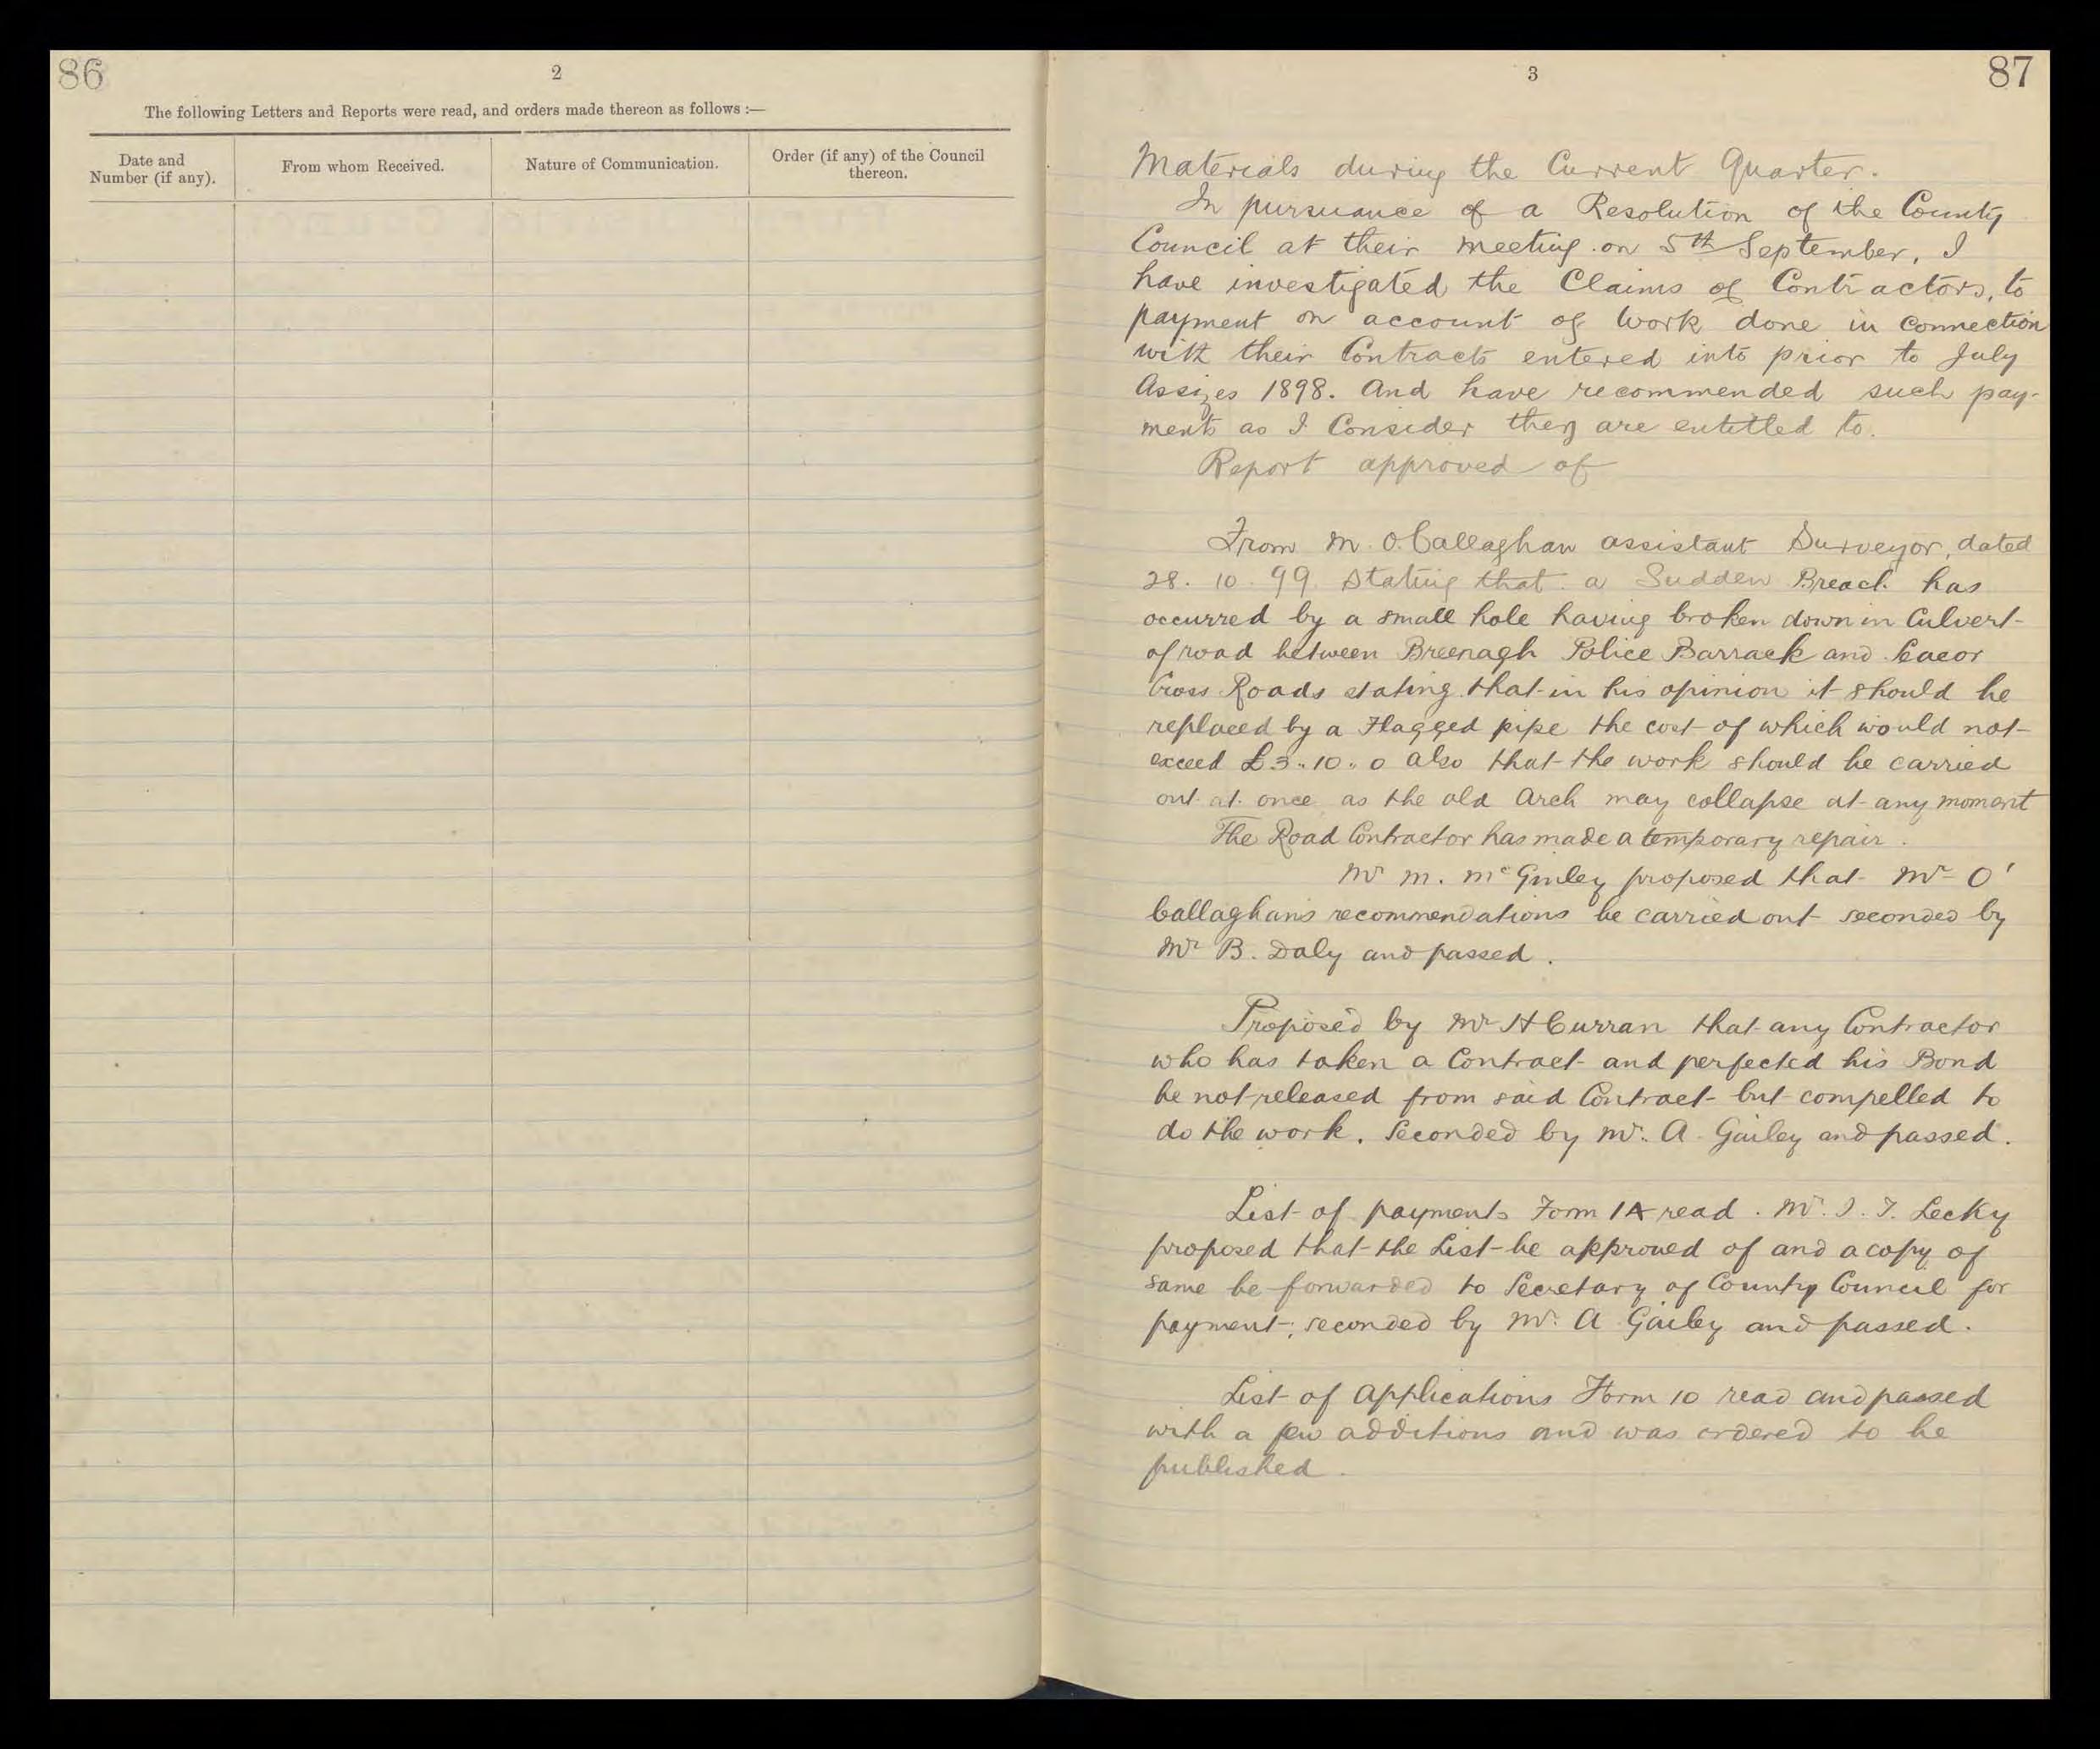 86
2
The following Letters and Reports were read, and orders made thereon as follows :—
Date and Number (if any).
From whom Received.
Nature of Communication.
Order (if any) of the Council thereon.
3
87
Materials during the Current Quarter.
In pursuance of a Resolution of the County
Council at their meeting on 5th September, I
have investigated the Claims of Contractors, to
payment on account of work done in connection
with their Contracts entered into prior to July
Assizes 1898. And have recommended such pay-
ments as I Consider they are entitled to.
Report approved of
From M. O.Callaghan assistant Surveyor, dated
28. 10. 99. Stating that a Sudden Breach has
occurred by a small hole having broken down in Culvert
of road between Breenagh Police Barrack and
Cross Roads stating that in his opinion it should be
replaced by a Flagged pipe the cost of which would not
exceed £3..10..0 also that the work should be carried
out at once as the old Arch may collapse at any moment
The Road Contractor has made a temporary repair.
Mr M. McGinley proposed that Mr O'
Callaghan's recommendations be carried out seconded by
Mr B. Daly and passed.
Proposed by Mr H Curran that any Contractor
who has taken a Contract and perfected his Bond
be not released from said Contract but compelled to
do the work. Seconded by Mr. A. Gailey and passed.
List of payments Form 1A read. Mr. J. T. Lecky
proposed that the List be approved of and a copy of
same be forwarded to Secretary of County Council for
payment; seconded by Mr. A Gailey and passed.
List of Applications Form 10 read and passed
with a few additions and was ordered to be
published.